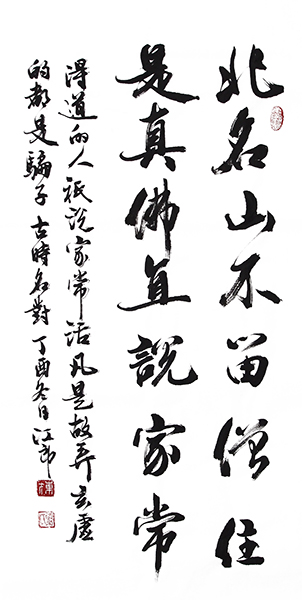 非名山不留僧住
是真佛直說家常
得道的人祇說家常話凡是故弄玄虛
的都是騙子 古時名對 丁酉冬日江郎